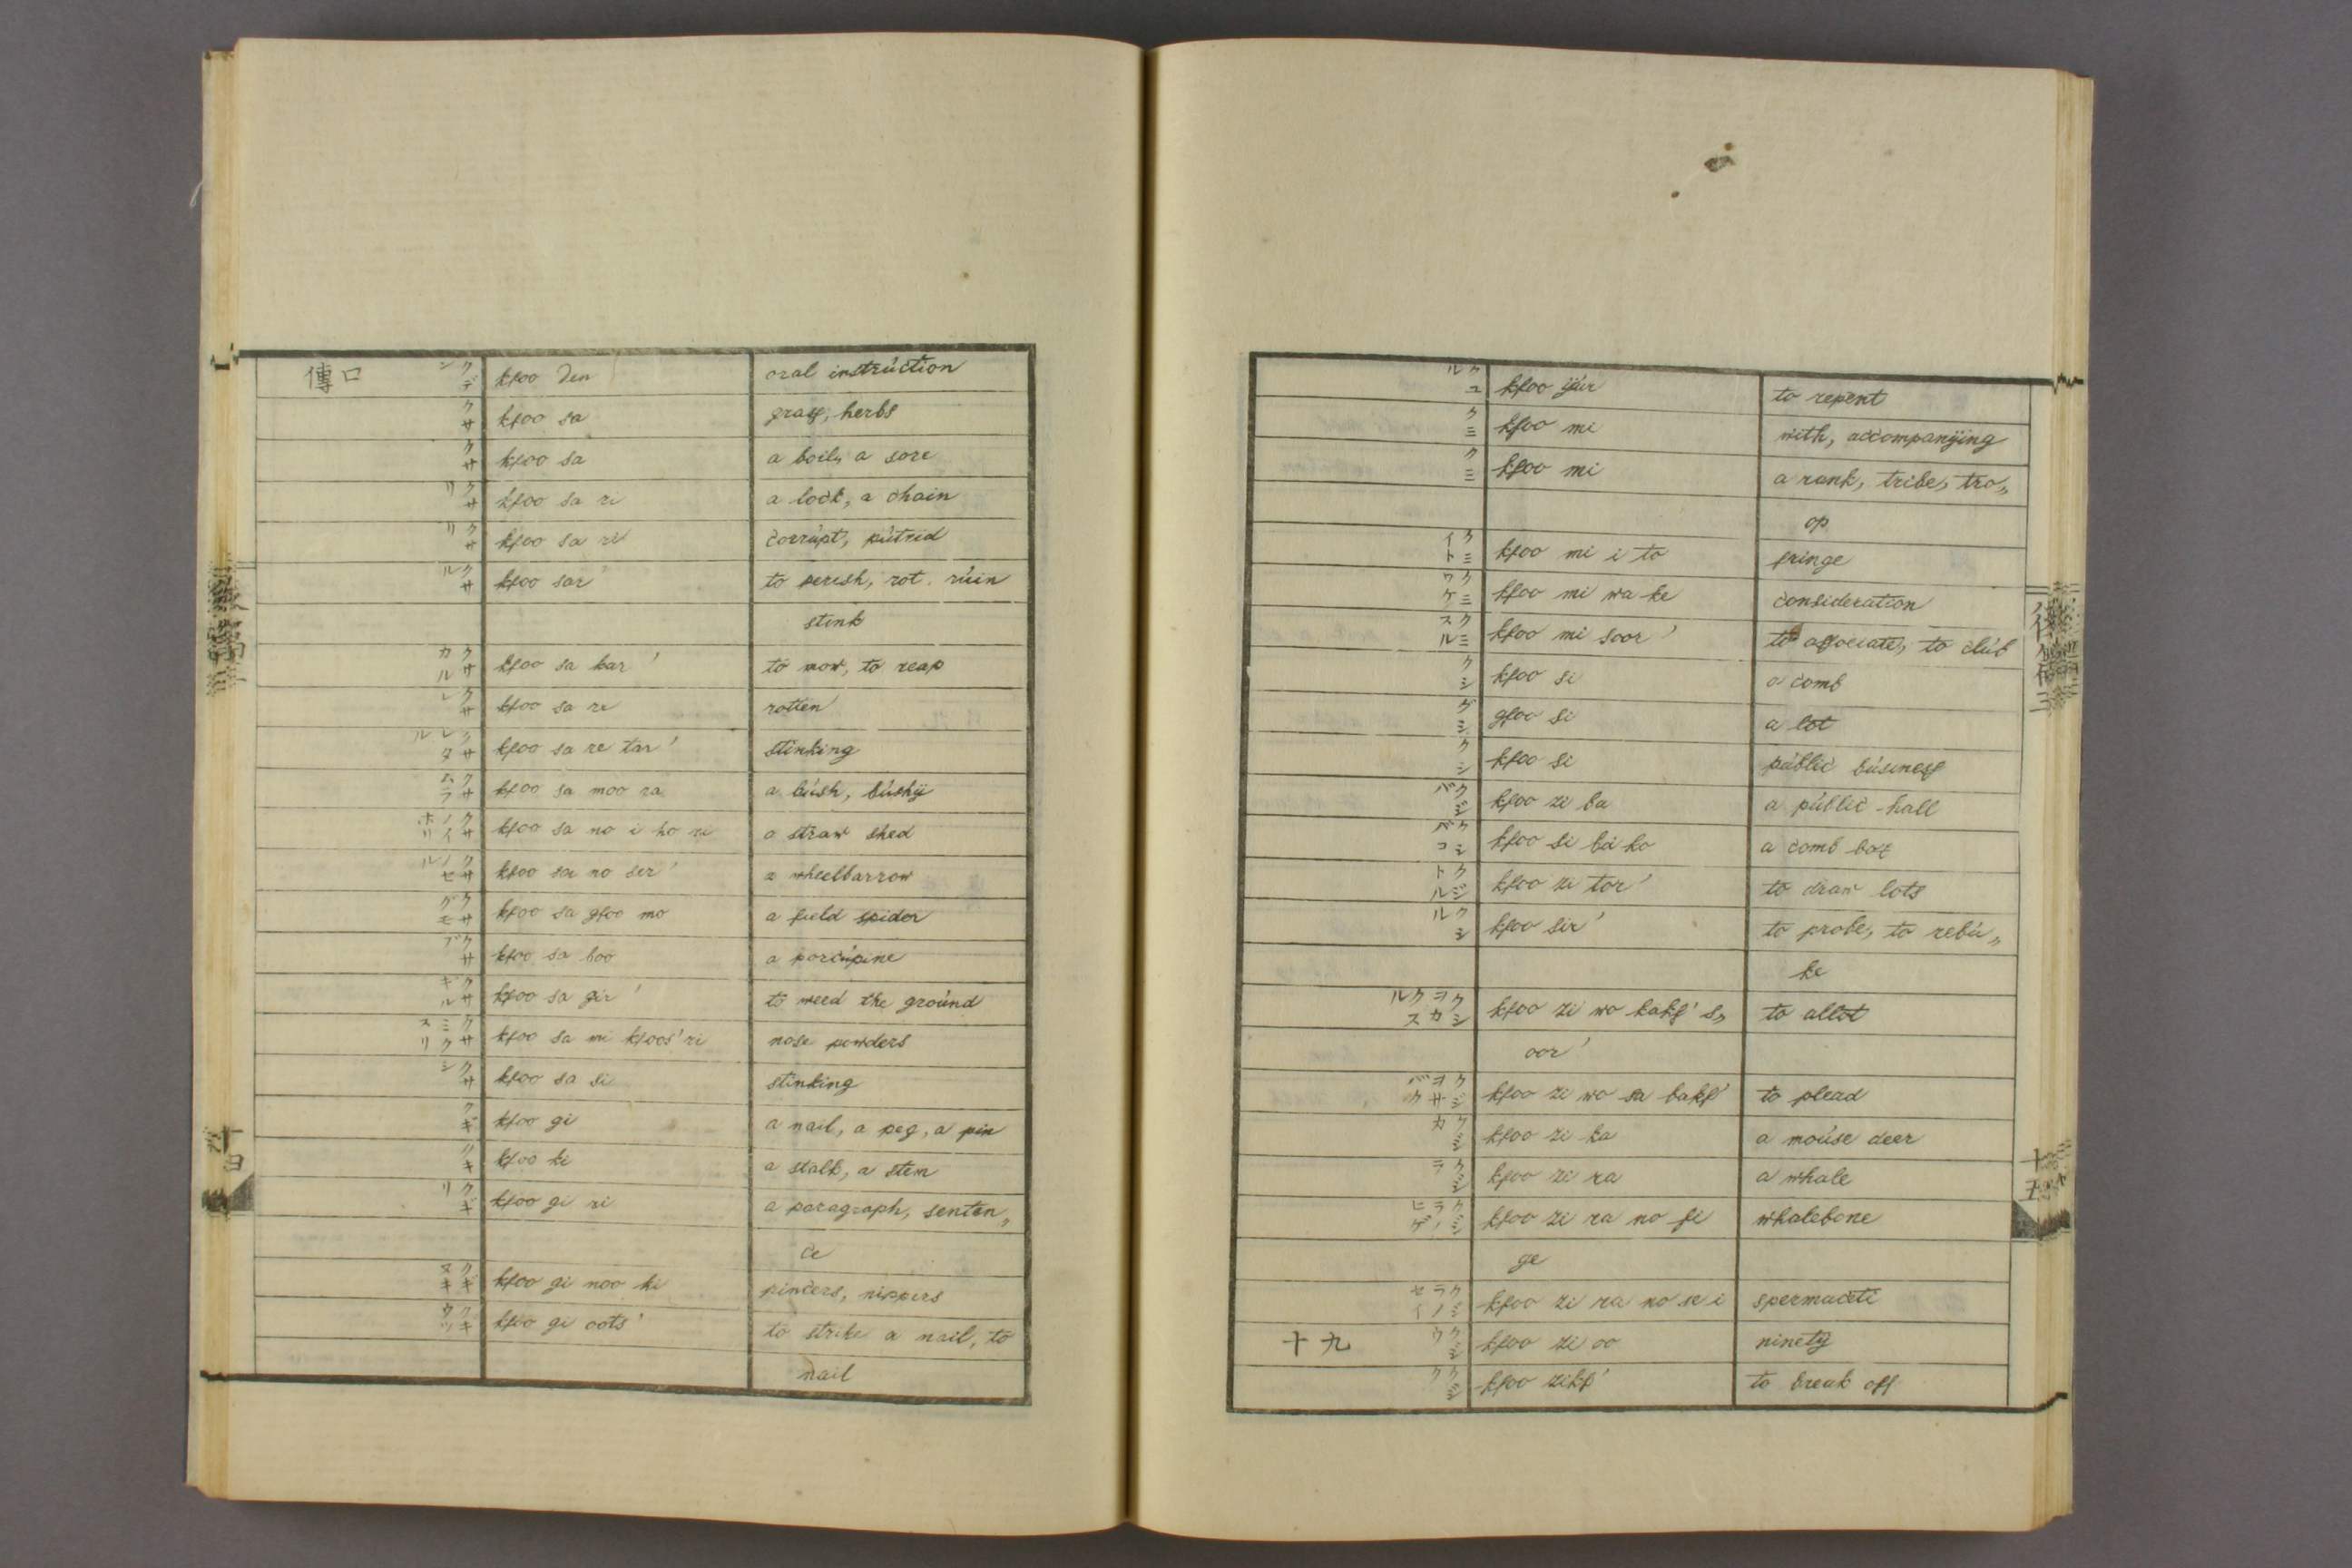 口傳 クデン kfoo den oral instrúction
クサ kfoo sa grass, herbs
クサ kfoo sa a boil, a sore
クサリ kfoo sa ri a lock, a chain
クサリ kfoo sa ri corrúpt, pútrid
クサル kfoo sar' to perish, rot. rúin
stink
クサカル kfoo sa kar' to mow, to reap
クサレ kfoo sa re rotten
クサレタル kfoo sa re tar' stinking
クサムラ kfoo sa moo ra a búsh, búshÿ
クサノイホリ kfoo sa no i ho ri a straw shed
クサノセル kfoo sa no ser' a wheelbarrow
クサグモ kfoo sa gfoo mo a field spider
クサブ kfoo sa boo a porcúpine
クサギル kfoo sa gir' to weed the groúnd
クサミクスリ kfoo sa mi kfoos'ri nose powders
クサシ kfoo sa si stinking
クギ kfoo gi a nail, a peg, a pin
クキ kfoo ki a stalk, a stem
クギリ kfoo gi ri a paragraph, senten„
ce
クギヌキ kfoo gi noo ki pincers, nippers
クギウツ kfoo gi oots' to strike a nail, to
nail
クユル kfoo ÿúr to repent
クミ kfoo mi with, accompanÿing
クミ kfoo mi a rank, tribe, tro„
op
クミイト kfoo mi i to fringe
クミワケ kfoo mi wa ke consideration
クミスル kfoo mi soor' to associate, to clúb
クシ kfoo si a comb
グシ gfoo si a lot
クシ kfoo si públic búsiness
クジバ kfoo zi ba a públic-hall
クシバコ kfoo si ba ko a comb box
クジトル kfoo zi tor' to draw lots
クシル kfoo sir' to probe, to rebú„
ke
クシヲカクスル kfoo zi wo kakf' s„ to allot
oor'
クジヲサバク kfoo zi wo sa bakf' to plead
クジカ kfoo zi ka a moúse deer
クジラ kfoo zi ra a whale
クジラノヒゲ kfoo zi ra no fi whalebone
ge
クジラノセイ kfoo zi ra no se i spermaceti
九十 クジウ kfoo zi oo ninetÿ
クジク kfoo zikf' to break off